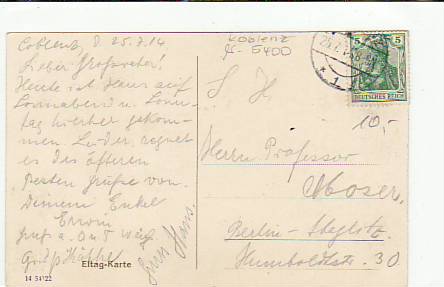 Coblenz, d. 25.7.14
Lieber Großvater!
Heute ist Hans auf
Sonnabend u. Sonn-
tag hierher gekom-
men. Leider regnet
es des öfteren
Besten Grüße von
Deinem Enkel
Erwin
Gruß Hans
Eftag-Karte
14 54122
Koblenz
5400
5 5
DEUTSCHES REICH
10,-
S H
Herrn Professor
Moser
Berlin-Steglitz
Humboldtstr. 30